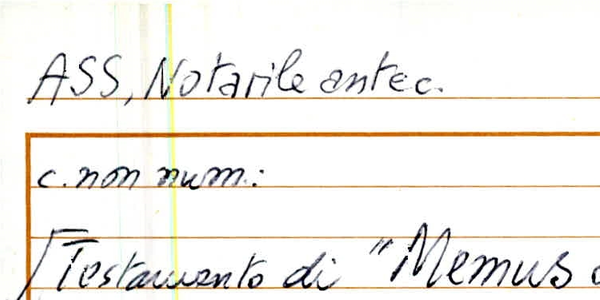 ASS, Notarile antec.
c. non num.:
Testamento di "Memus